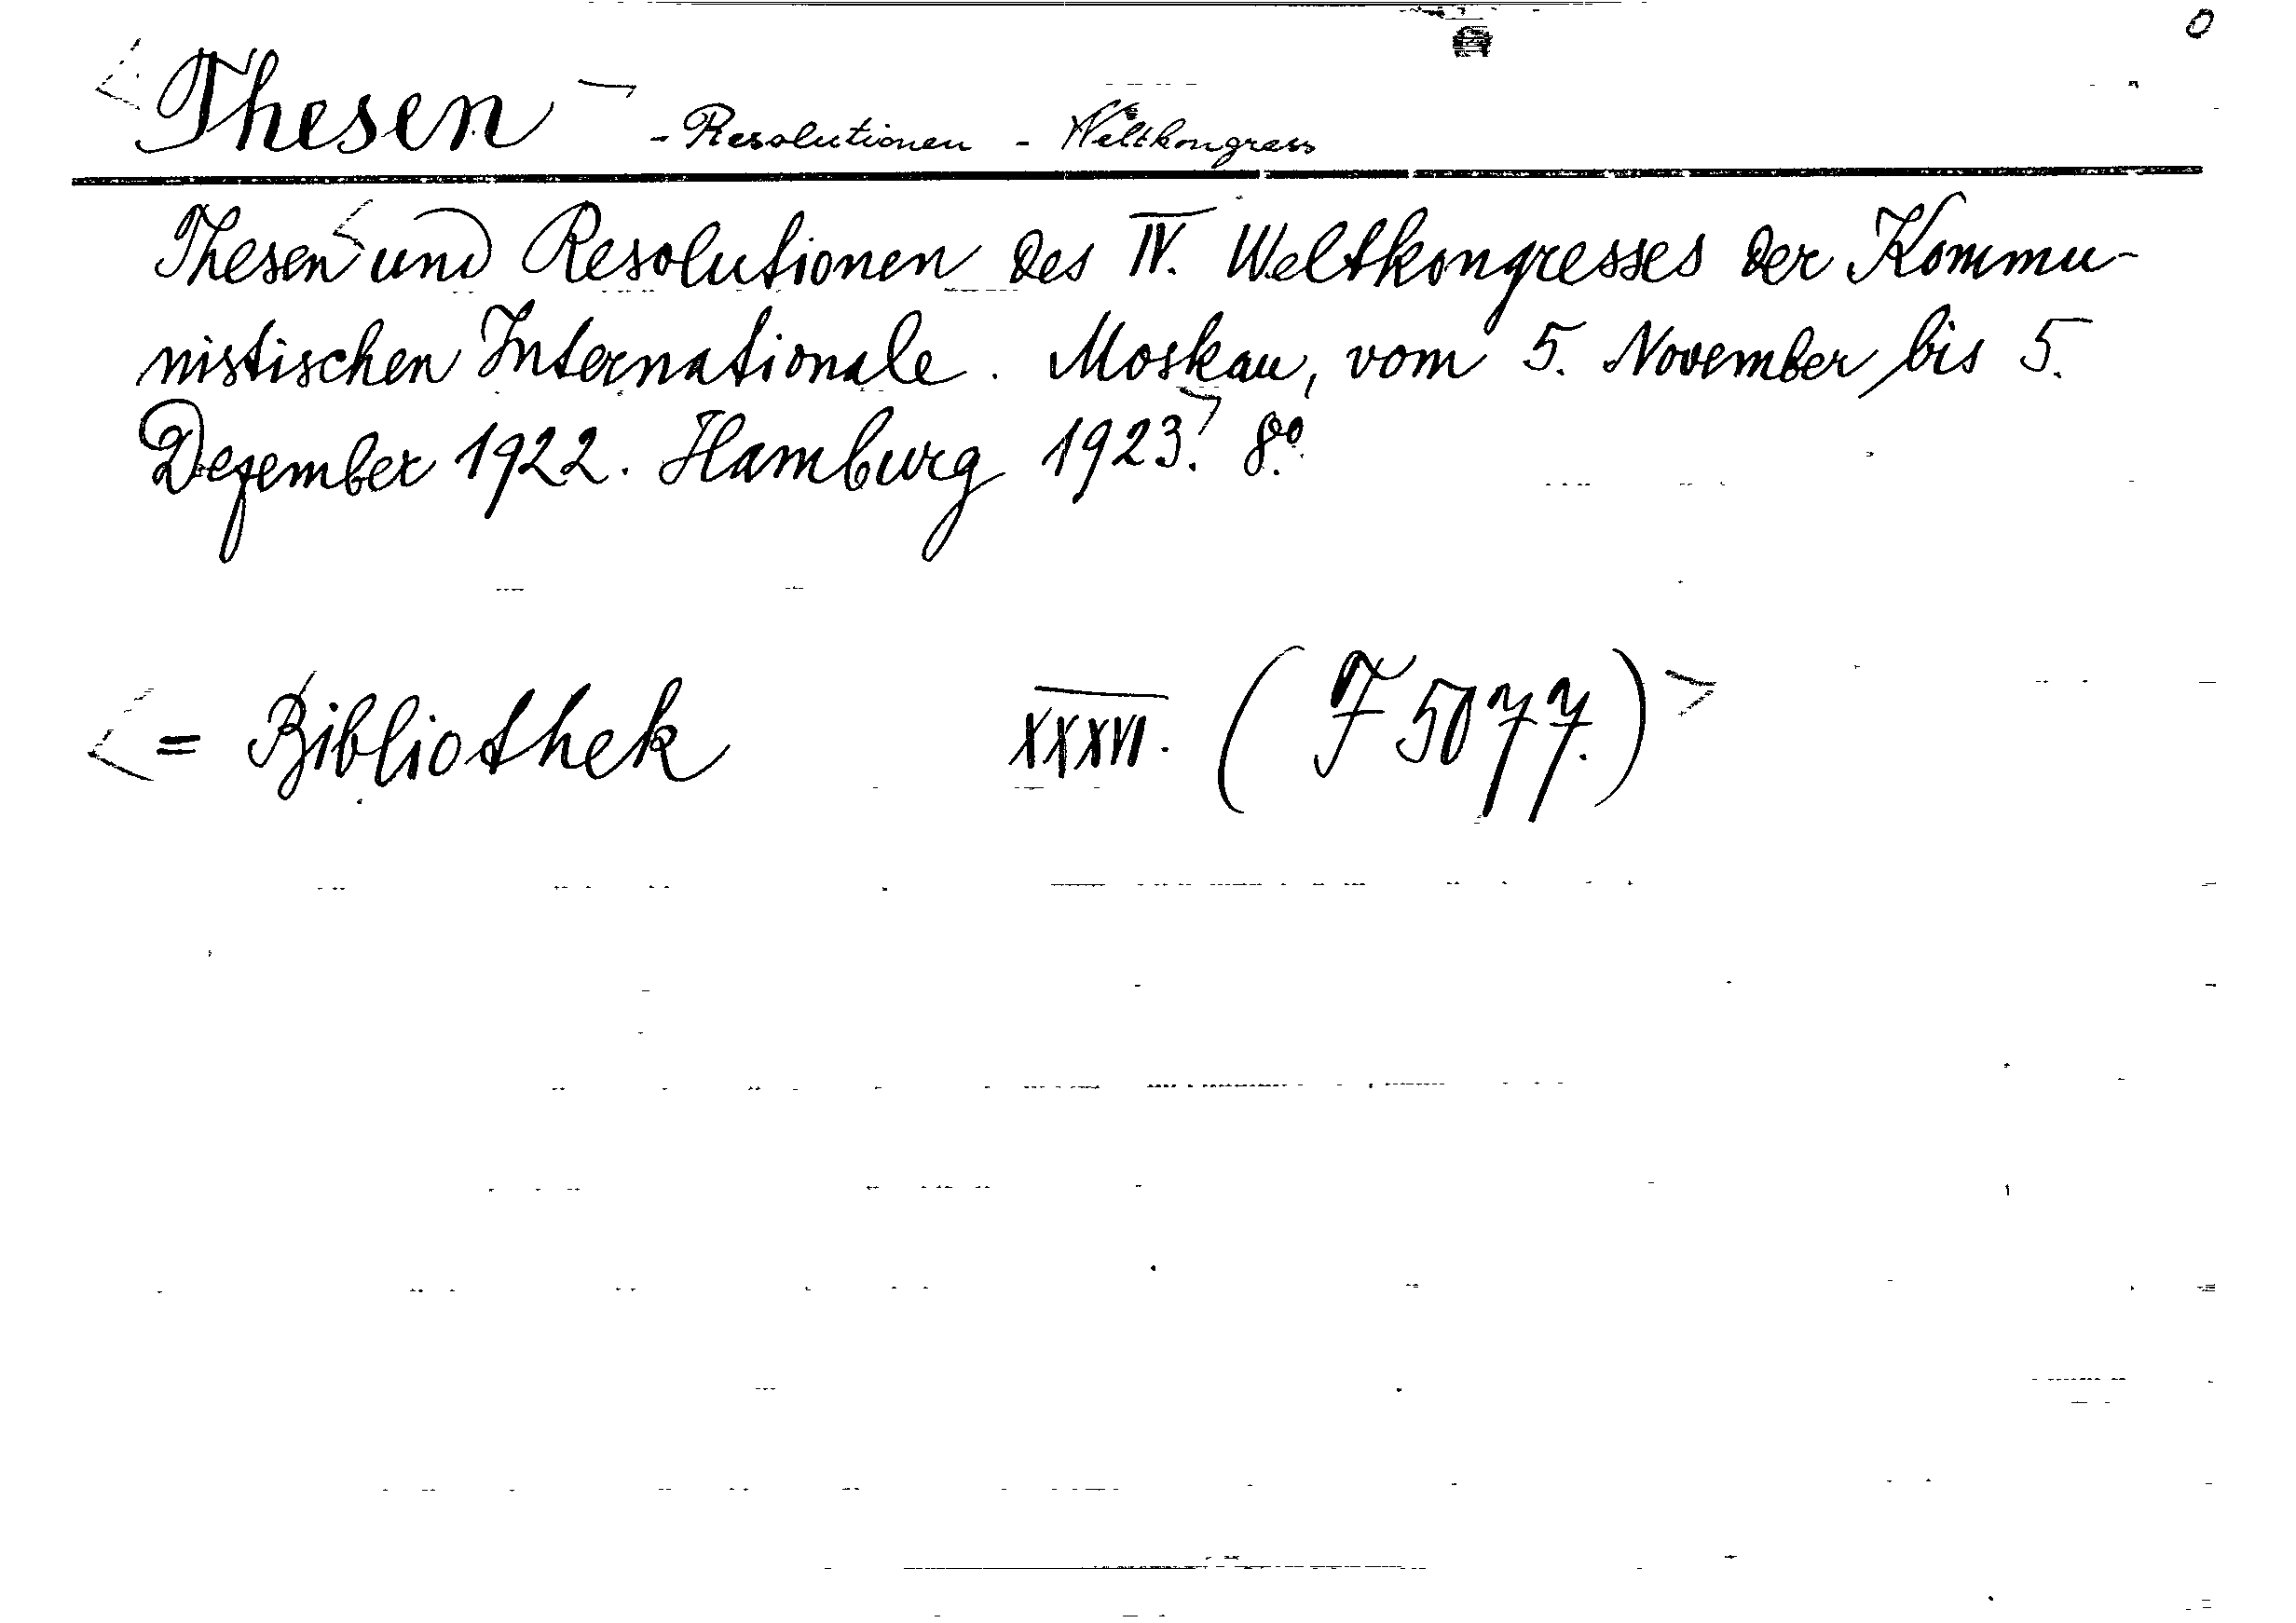 Thesen - Resolutionen - Weltkongress
Thesen und Resolutionen des IV. Weltkongresses der Kommu-
nistischen Internationale. Moskau, vom 5. November bis 5.
Dezember 1922. Hamburg 1923. 8°.
= Bibliothek XXXVI. (F 5077.)